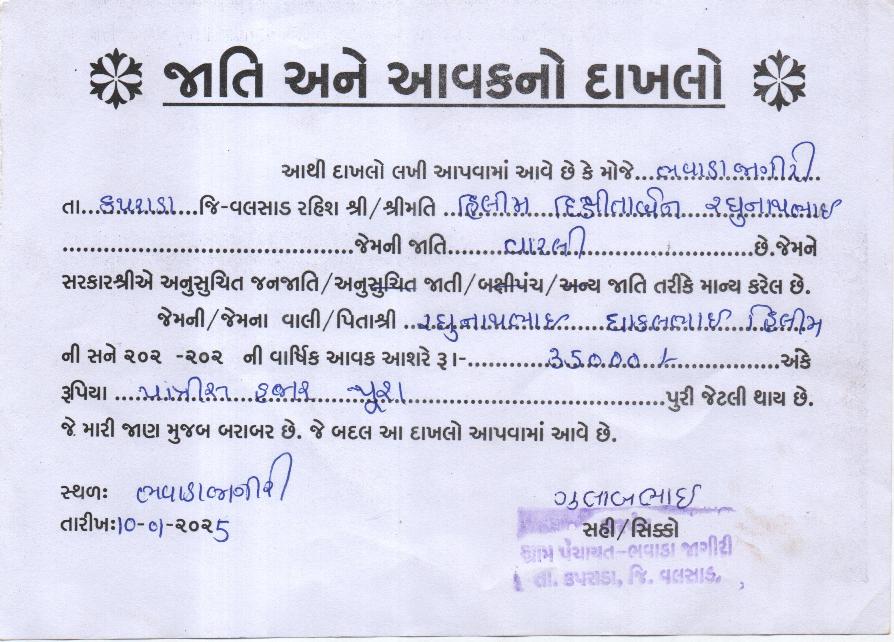 જાતિ અને આવકનો દાખલો
આથી દાખલો લખી આપવામાં આવે છે કે મોજે...ભવાડાજાગીરી
તા...કપરાડા...જિ-વલસાડ રહિશ શ્રી/શ્રીમતિ ..હિલીમ દિક્ષીતાબેન રઘુનાથભાઇ
..................જેમની જાતિ........વારલી..................છે.જેમને
સરકારશ્રીએ અનુસુચિત જનજાતિ/અનુસુચિત જાતી/બક્ષીપંચ/અન્ય જાતિ તરીકે માન્ય કરેલ છે.
જેમની/જેમના વાલી/પિતાશ્રી ..રઘુનાથભાઇ ધાકલભાઈ હિલીમ
ની સને ૨૦૨ -૨૦૨ ની વાર્ષિક આવક આશરે રૂા.-..........35000/-..............અંકે
રૂપિયા ....પાત્રીસ હજાર પૂરા..............................પુરી જેટલી થાય છે.
જે મારી જાણ મુજબ બરાબર છે. જે બદલ આ દાખલો આપવામાં આવે છે.
સ્થળઃ ભવાડાજાગીરી
ગુલાબભાઈ
તારીખઃ10-01-૨૦૨5
સહી/સિક્કો
ગ્રામ પંચાયત-ભવાડા જાગીરી
તા. કપરાડા, જિ. વલસાડ.